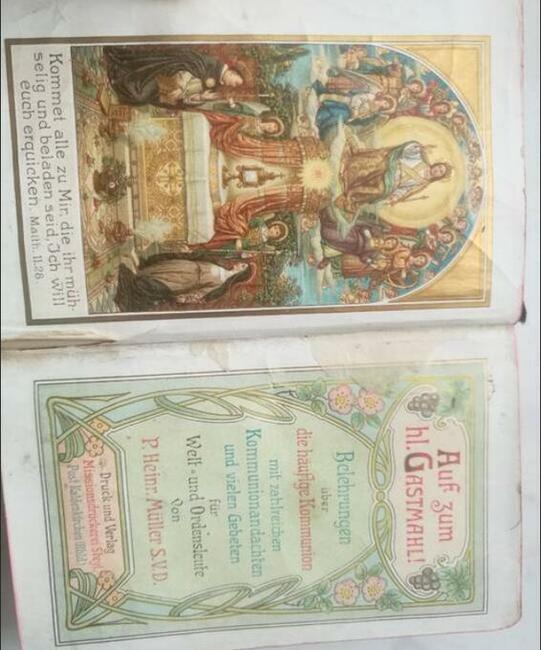 Kommet alle zu Mir, die ihr müh-
selig und beladen seid, Ich will
euch erquicken. Matth. 11.28.
Auf zum
hl. GASTMAHL!
Belehrungen
über
die häufige Kommunion
mit zahlreichen
Kommunionandachten
und vielen Gebeten
für
Welt- und Ordensleute
Von
P. Heinr. Müller S.V.D.
Druck und Verlag
Missionsdruckerei Steyl
Post Kaldenkirchen